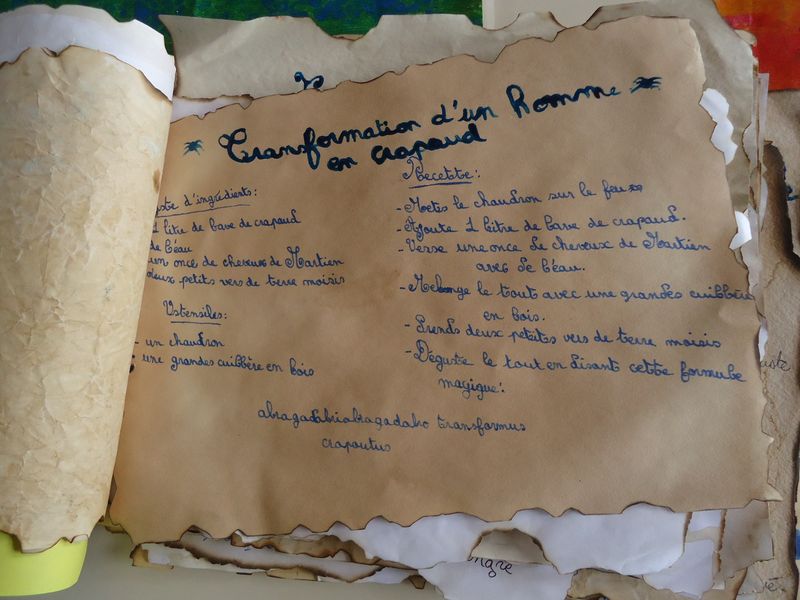 Transformation d'un homme
en crapaud
liste d'ingrédients:
1 litre de bave de crapaud
de l'éau
un once de cheveux de Martien
deux petits vers de terre moisis
Ustensiles:
- un chaudron
- une grandes cuillère en bois
Recette:
- Metes le chaudron sur le feu
- Ajoute 1 litre de bave de crapaud.
- Verse une once de cheveux de Martien
avec de l'éau.
- Melange le tout avec une grandes cuillère
en bois.
- Prends deux petites vers de terre moisis
- Déguste le tout en disant cette formule
magique:
abragadabriabragadabro transformus
crapoutus